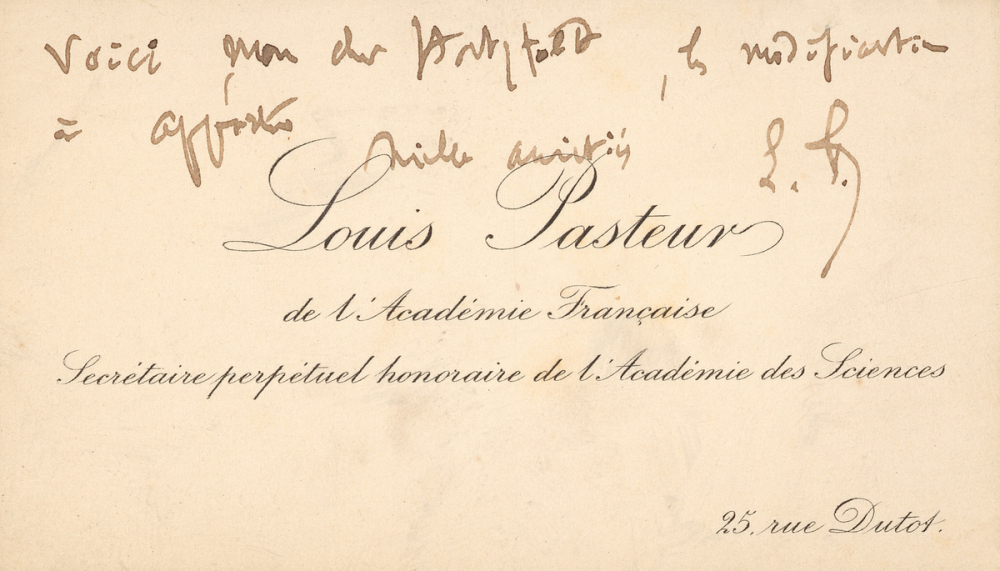 Voici mon cher , la modification
à apporter
mille amitiés L. P.
Louis Pasteur
de l'Académie Française
Secrétaire perpétuel honoraire de l'Académie des Sciences
25, rue Dutot.